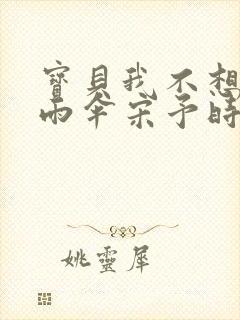 寶貝我不想
雨傘宋予時
姚靈犀